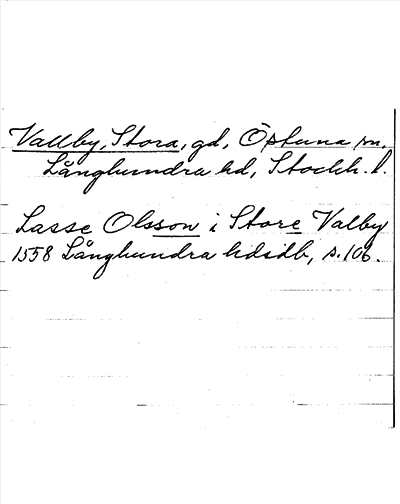 Vallby, Stora, gd, Östuna sn,
Långhundra hd, Stockh. l.
Lasse Olsson i Store Valby
1558 Långhundra hdsdb, s. 106.